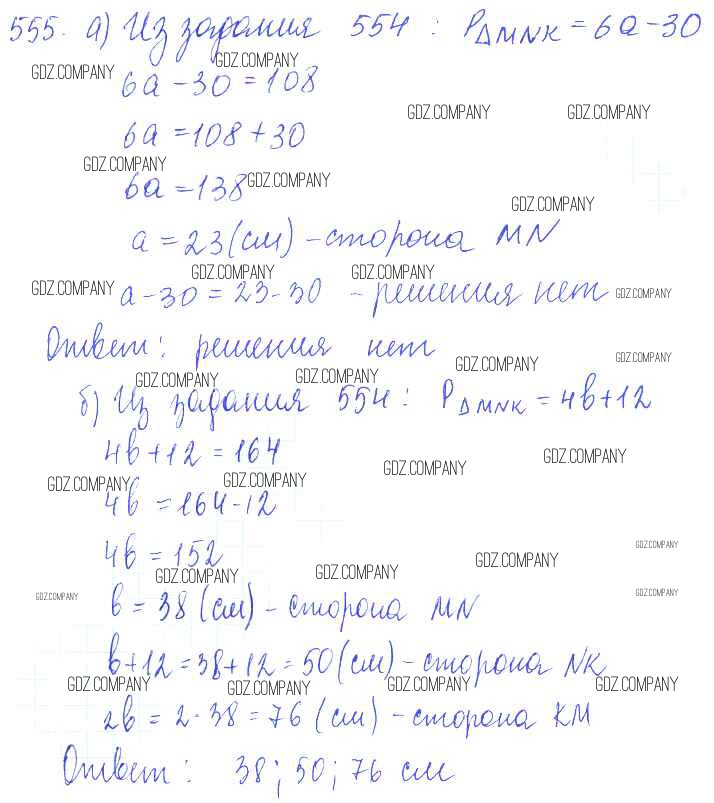 555. а) Из задания 554 : P△MNK = 6a - 30
GDZ.COMPANY GDZ.COMPANY
6a - 30 = 108
GDZ.COMPANY GDZ.COMPANY
6a = 108 + 30
GDZ.COMPANY GDZ.COMPANY
6a = 138
GDZ.COMPANY
a = 23 (см) - сторона MN
GDZ.COMPANY GDZ.COMPANY
GDZ.COMPANY a - 30 = 23 - 30 - решения нет GDZ.COMPANY
Ответ: решения нет
GDZ.COMPANY GDZ.COMPANY
GDZ.COMPANY GDZ.COMPANY
б) Из задания 554 : P△MNK = 4b + 12
4b + 12 = 164
GDZ.COMPANY GDZ.COMPANY
GDZ.COMPANY GDZ.COMPANY
4b = 164 - 12
4b = 152
GDZ.COMPANY
GDZ.COMPANY GDZ.COMPANY GDZ.COMPANY
GDZ.COMPANY GDZ.COMPANY
b = 38 (см) - сторона MN
b + 12 = 38 + 12 = 50 (см) - сторона NK
GDZ.COMPANY GDZ.COMPANY GDZ.COMPANY GDZ.COMPANY
2b = 2 · 38 = 76 (см) - сторона KM
Ответ: 38 ; 50 ; 76 см